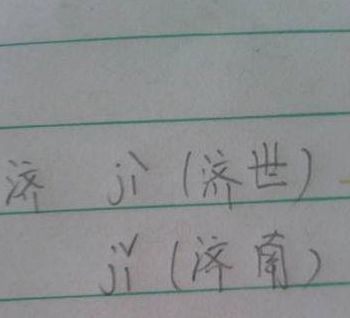 济 jì (济世)
jǐ (济南)